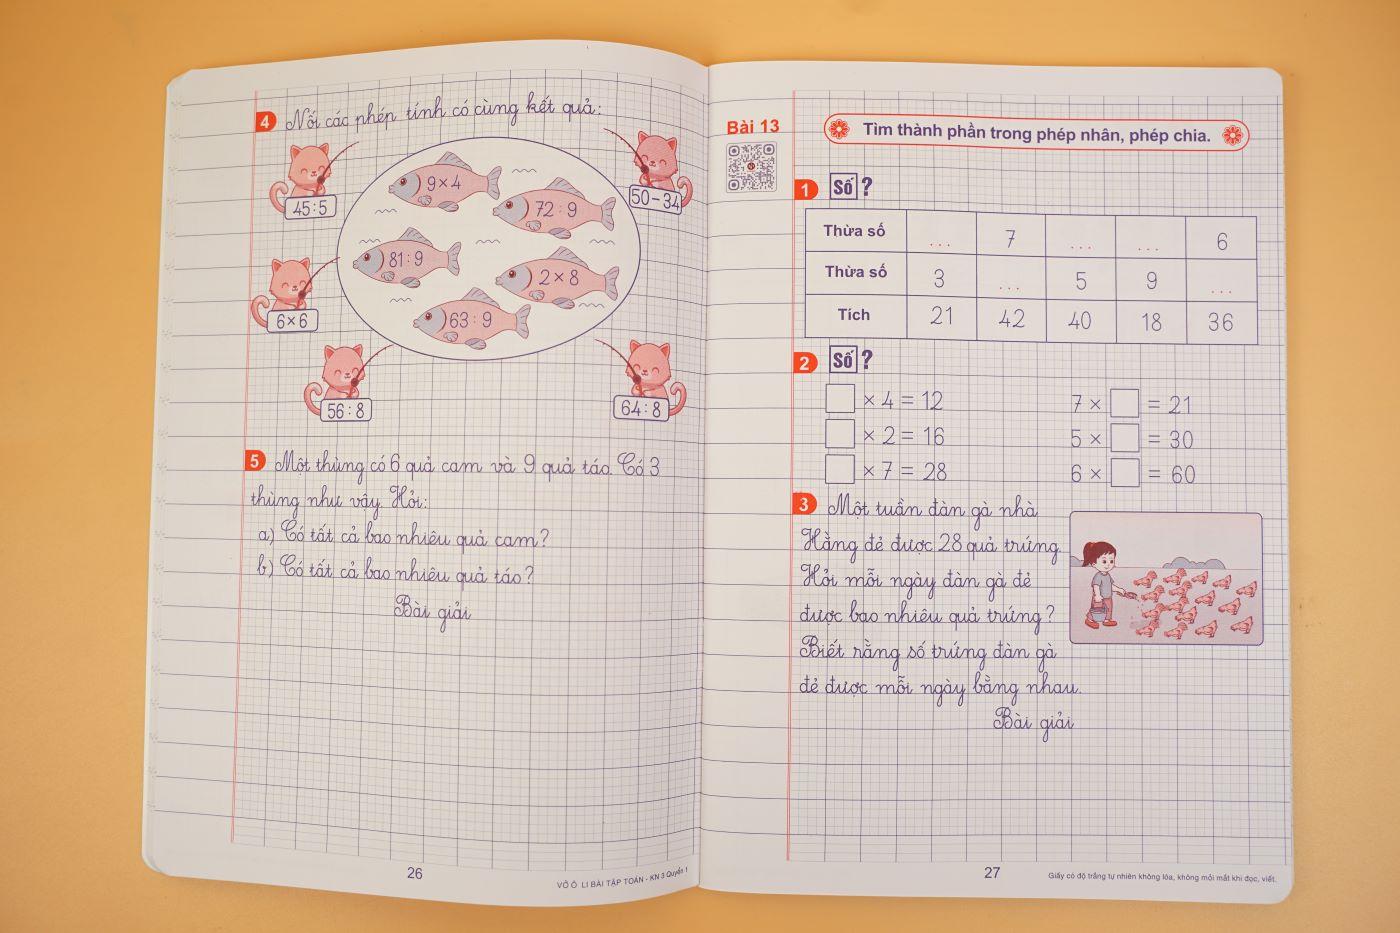 4 Nối các phép tính có cùng kết quả:
45:5
50-34
9×4
72:9
81:9
2×8
63:9
6×6
56:8
64:8
5 Một thùng có 6 quả cam và 9 quả táo. Có 3
thùng như vậy. Hỏi:
a) Có tất cả bao nhiêu quả cam?
b) Có tất cả bao nhiêu quả táo?
Bài giải
26
VỞ Ô LI BÀI TẬP TOÁN - KN 3 Quyển 1
Bài 13
Tìm thành phần trong phép nhân, phép chia.
1 Số ?
Thừa số ... 7 ... ... 6
Thừa số 3 ... 5 9 ...
Tích 21 42 40 18 36
2 Số ?
× 4 = 12 7 × = 21
× 2 = 16 5 × = 30
× 7 = 28 6 × = 60
3 Một tuần đàn gà nhà
Hằng đẻ được 28 quả trứng.
Hỏi mỗi ngày đàn gà đẻ
được bao nhiêu quả trứng?
Biết rằng số trứng đàn gà
đẻ được mỗi ngày bằng nhau.
Bài giải
27
Giấy có độ trắng tự nhiên không lóa, không mỏi mắt khi đọc, viết.